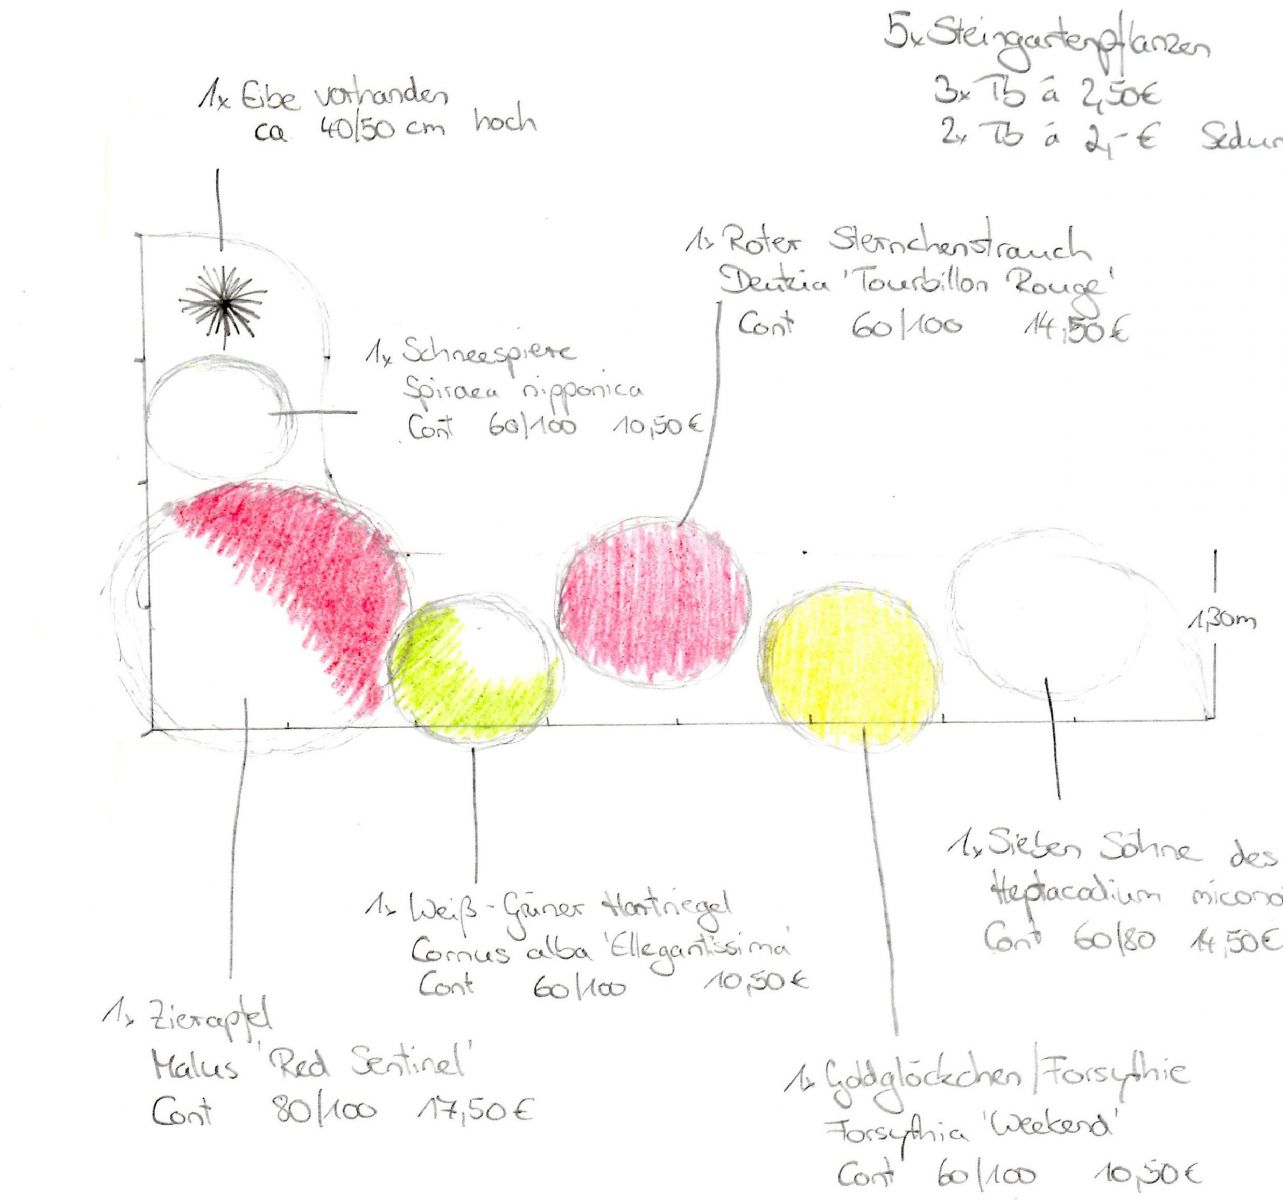 5x Steingartenpflanzen
3x Tb á 2,50€
2x Tb á 2,-€ Sedum
1x Eibe vorhanden
ca 40/50 cm hoch
1x Roter Sternchenstrauch
Deutzia 'Tourbillon Rouge'
Cont 60/100 14,50€
1x Schneespiere
Spiraea nipponica
Cont 60/100 10,50€
1,30m
1x Sieben Söhne des
Heptacodium micono
Cont 60/80 14,50€
1x Weiß-Grüner Hartriegel
Cornus alba 'Ellegantissima'
Cont 60/100 10,50€
1x Zierapfel
Malus 'Red Sentinel'
Cont 80/100 17,50€
1x Goldglöckchen/Forsythie
Forsythia 'Weekend'
Cont 60/100 10,50€